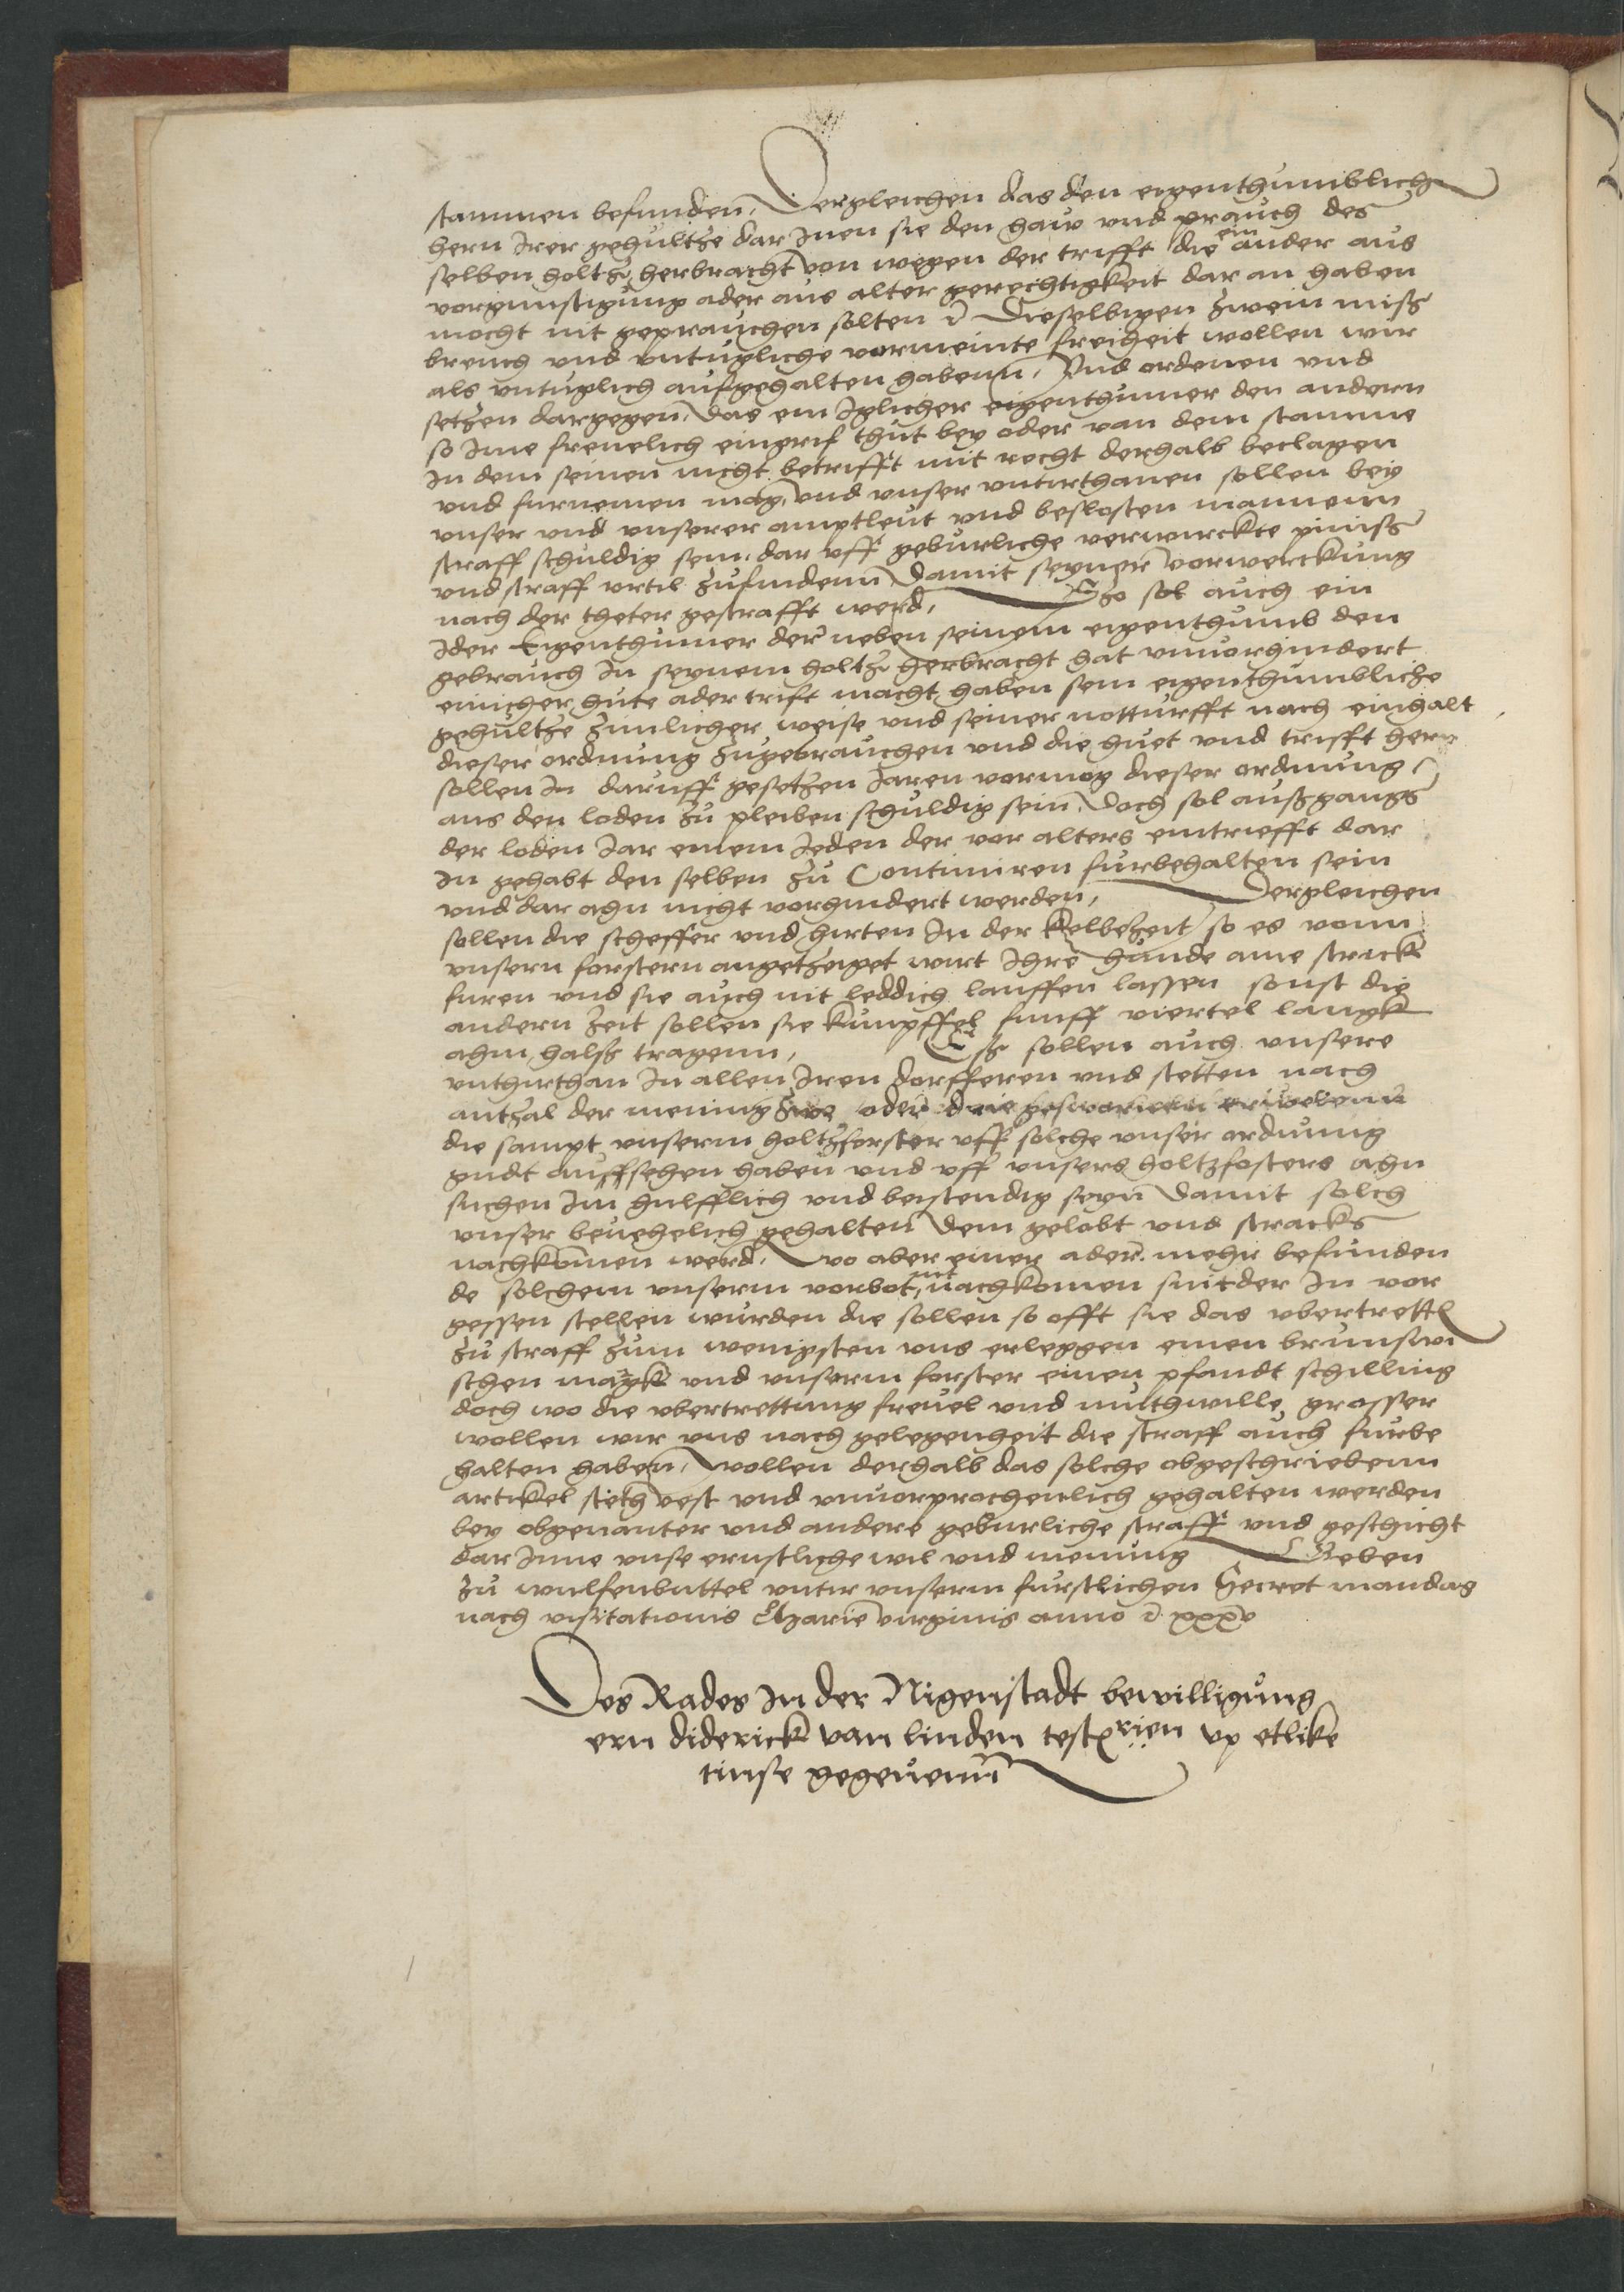 stammen befunden, Dergleichen das den eigenthumblich
hern Irer gehultze dar Inen sie den hauw vnd prauch des
selben holtz herbracht von wegen der trifft die ein ander aus
vorgunstigung ader aus alter gerechtigkeit dar an haben
mocht nit geprauchen solten Dieselbigen zwein miß
breuch vnd vntugliche vormeinte freiheit wollen wir
als vntuglich aufgehalten habenn, Vnd ordenen vnd
setzen dargegen, das ein Iglicher eigenthumer den andern
so Ime freuelich eingrif thut bey oder van dem stamme
In dem seinen nicht betrifft mit recht derhalb beclagen
vnd furnemen mag, vnd vnser vnttrthanen sollen bey
vnser vnd vnserer amptleut vnd beslosten mannenn
straff schuldig sein, dar vff geburliche verwirckte
vnd straff vrtil zufindenn Damit seyner vorwerckung
nach der theter gestrafft werd, Szo sol auch ein
Ider Eigenthumer der neben seinem eigenthumb den
gebrauch In seynem holtz herbracht hat vnuorhindert
einicher hute ader trift macht haben sein eigenthumbliche
gehultze zimlicher weise vnd seiner notturfft nach einhalt
dieser ordnung zugebrauchen vnd die huet vnd trifft hern
sollen In daruff gesetzen Jaren vormog dieser ordnung
aus den loden zu pleiben schuldig sein, Doch sol außgangs
der loden Jar einem Jeden der vor alters eintriefft dar
In gehabt den selben zu Continuiren furbehalten sein
vnd dar ahn nicht vorhindert werden, Dergleichen
sollen die scheffer vnd hirten In der kelbezeit so es vonn
vnsern forstern angetzeiget wirt Ihre hunde ame strick
furen vnd sie auch nit leddich lauffen lassen sonst die
andern zeit sollen sie kunpffel funff viertel langk
ahm halß tragenn, Eß sollen auch vnsere
vnthirthan In allen Iren dorfferen vnd stetten nach
antzal der mening zwe oder drie geswornen erwelenn
die sampt vnserm holtzforster vff solche vnser ordnung
gudt auffsehen haben vnd vff vnsers holtzfosters ahn
suchen Im hulfflich vnd beistendig seyn Damit solch
vnser beuehelich gehalten Dem gelobt vnd stracks
nachkomen werd, wo aber einer ader mehr befunden
de solchem vnserm vorbot nit nachkomen sunder In vor
gessen stellen wurden die sollen so offt sie das vbertrettl
zu straff zum wenigsten vns erleggen einen brunswi
schen margk vnd vnserm forster einen pfandt schilling
doch wo die vbertrettung freuel vnd muthwille grosser
wollen wir vns nach gelegenheit die straff auch furbe
halten haben, wollen derhalb das solche obgeschriebenn
artikel steth vest vnd vnuorprochenlich gehalten werden
bey obgenanter vnd andere geburliche straff vnd geschicht
dar Inne vnse ernstliche wil vnd menung Geben
zu wulfenbuttel vntir vnserm furstlichen Secret mandag
nach visitationis Marie virginis anno xxxv
Des Rades In der Nigenstadt bewilligung
ern diderick van linden testrien vp etlike
tinse gegeuenn